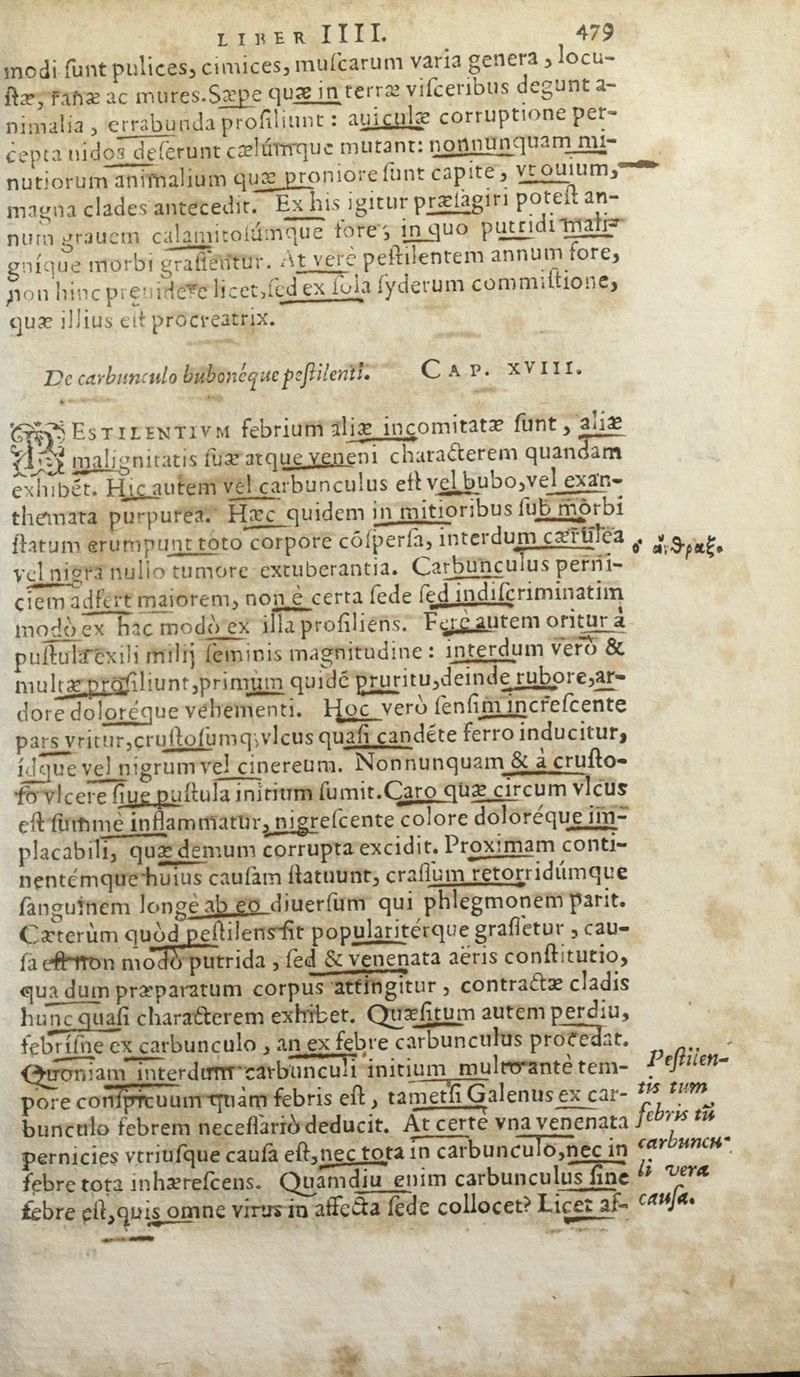 LIBER IIII. 479
modi ſunt pulices, cimices, muſcarum varia genera, locu-
ſtæ, ranæ ac mures. Sæpe quæ in terræ viſceribus degunt a-
nimalia, errabunda proſiliunt: auiculæ corruptione per-
cepta nidos deſerunt cælúmque mutant: nonnunquam mi-
nutiorum animalium quæ proniore ſunt capite, vt ouium,
magna clades antecedit. Ex his igitur præſagiri poteſt an-
num grauem calamitoſúmque fore, in quo putridi mali-
gníque morbi graſſentur. At verè peſtilentem annum fore,
non hinc preuidere licet, ſed ex ſola ſyderum commiſtione,
quæ illius eſt procreatrix.
De carbunculo bubonéque peſtilenti. CAP. XVIII.
PESTILENTIVM febrium aliæ incomitatæ ſunt, aliæ
malignitatis ſuæ atque veneni characterem quandam
exhibét. Hic autem vel carbunculus eſt vel bubo, vel exan-
themata purpurea. Hæc quidem in mitioribus ſub morbi
ſtatum erumpunt toto corpore cõſperſa, interdum cærulea
vel nigra nullo tumore extuberantia. Carbunculus perni-
ciem adfert maiorem, non è certa ſede ſed indiſcriminatim
modò ex hac modò ex illa proſiliens. Ferè autem oritur à
puſtula exili milij ſeminis magnitudine: interdum verò &
multæ proſiliunt, primùm quidé pruritu, deinde rubore, ar-
dore doloréque vehementi. Hoc verò ſenſim increſcente
pars vritur, cruſtoſumq; vlcus quaſi candéte ferro inducitur,
ídque vel nigrum vel cinereum. Nonnunquam & à cruſto-
ſo vlcere ſiue puſtula initium ſumit. Caro quæ circum vlcus
eſt ſummè inflammatur, nigreſcente colore doloréque im-
placabili, quæ demum corrupta excidit. Proximam conti-
nentémque huius cauſam ſtatuunt, craſſum retorridúmque
ſanguinem longè ab eo diuerſum qui phlegmonem parit.
Cæterùm quòd peſtilens ſit populariterque graſſetur, cau-
ſa eſt non modò putrida, ſed & venenata aëris conſtitutio,
qua dum præparatum corpus attingitur, contractæ cladis
hunc quaſi characterem exhibet. Quæſitum autem perdiu,
febríſne ex carbunculo, an ex febre carbunculus procedat.
Quoniam interdum carbunculi initium multo antè tem-
pore conſpicuum quàm febris eſt, tametſi Galenus ex car-
bunculo febrem neceſſariò deducit. At certè vna venenata
pernicies vtriuſque cauſa eſt, nec tota in carbunculo, nec in
febre tota inhæreſcens. Quamdiu enim carbunculus ſine
febre eſt, quis omne virus in affecta ſede collocet? Licet af-
ἄνθραξ.
Peſtilen-
tis tum
febris tũ
carbuncu-
li vera
cauſa.